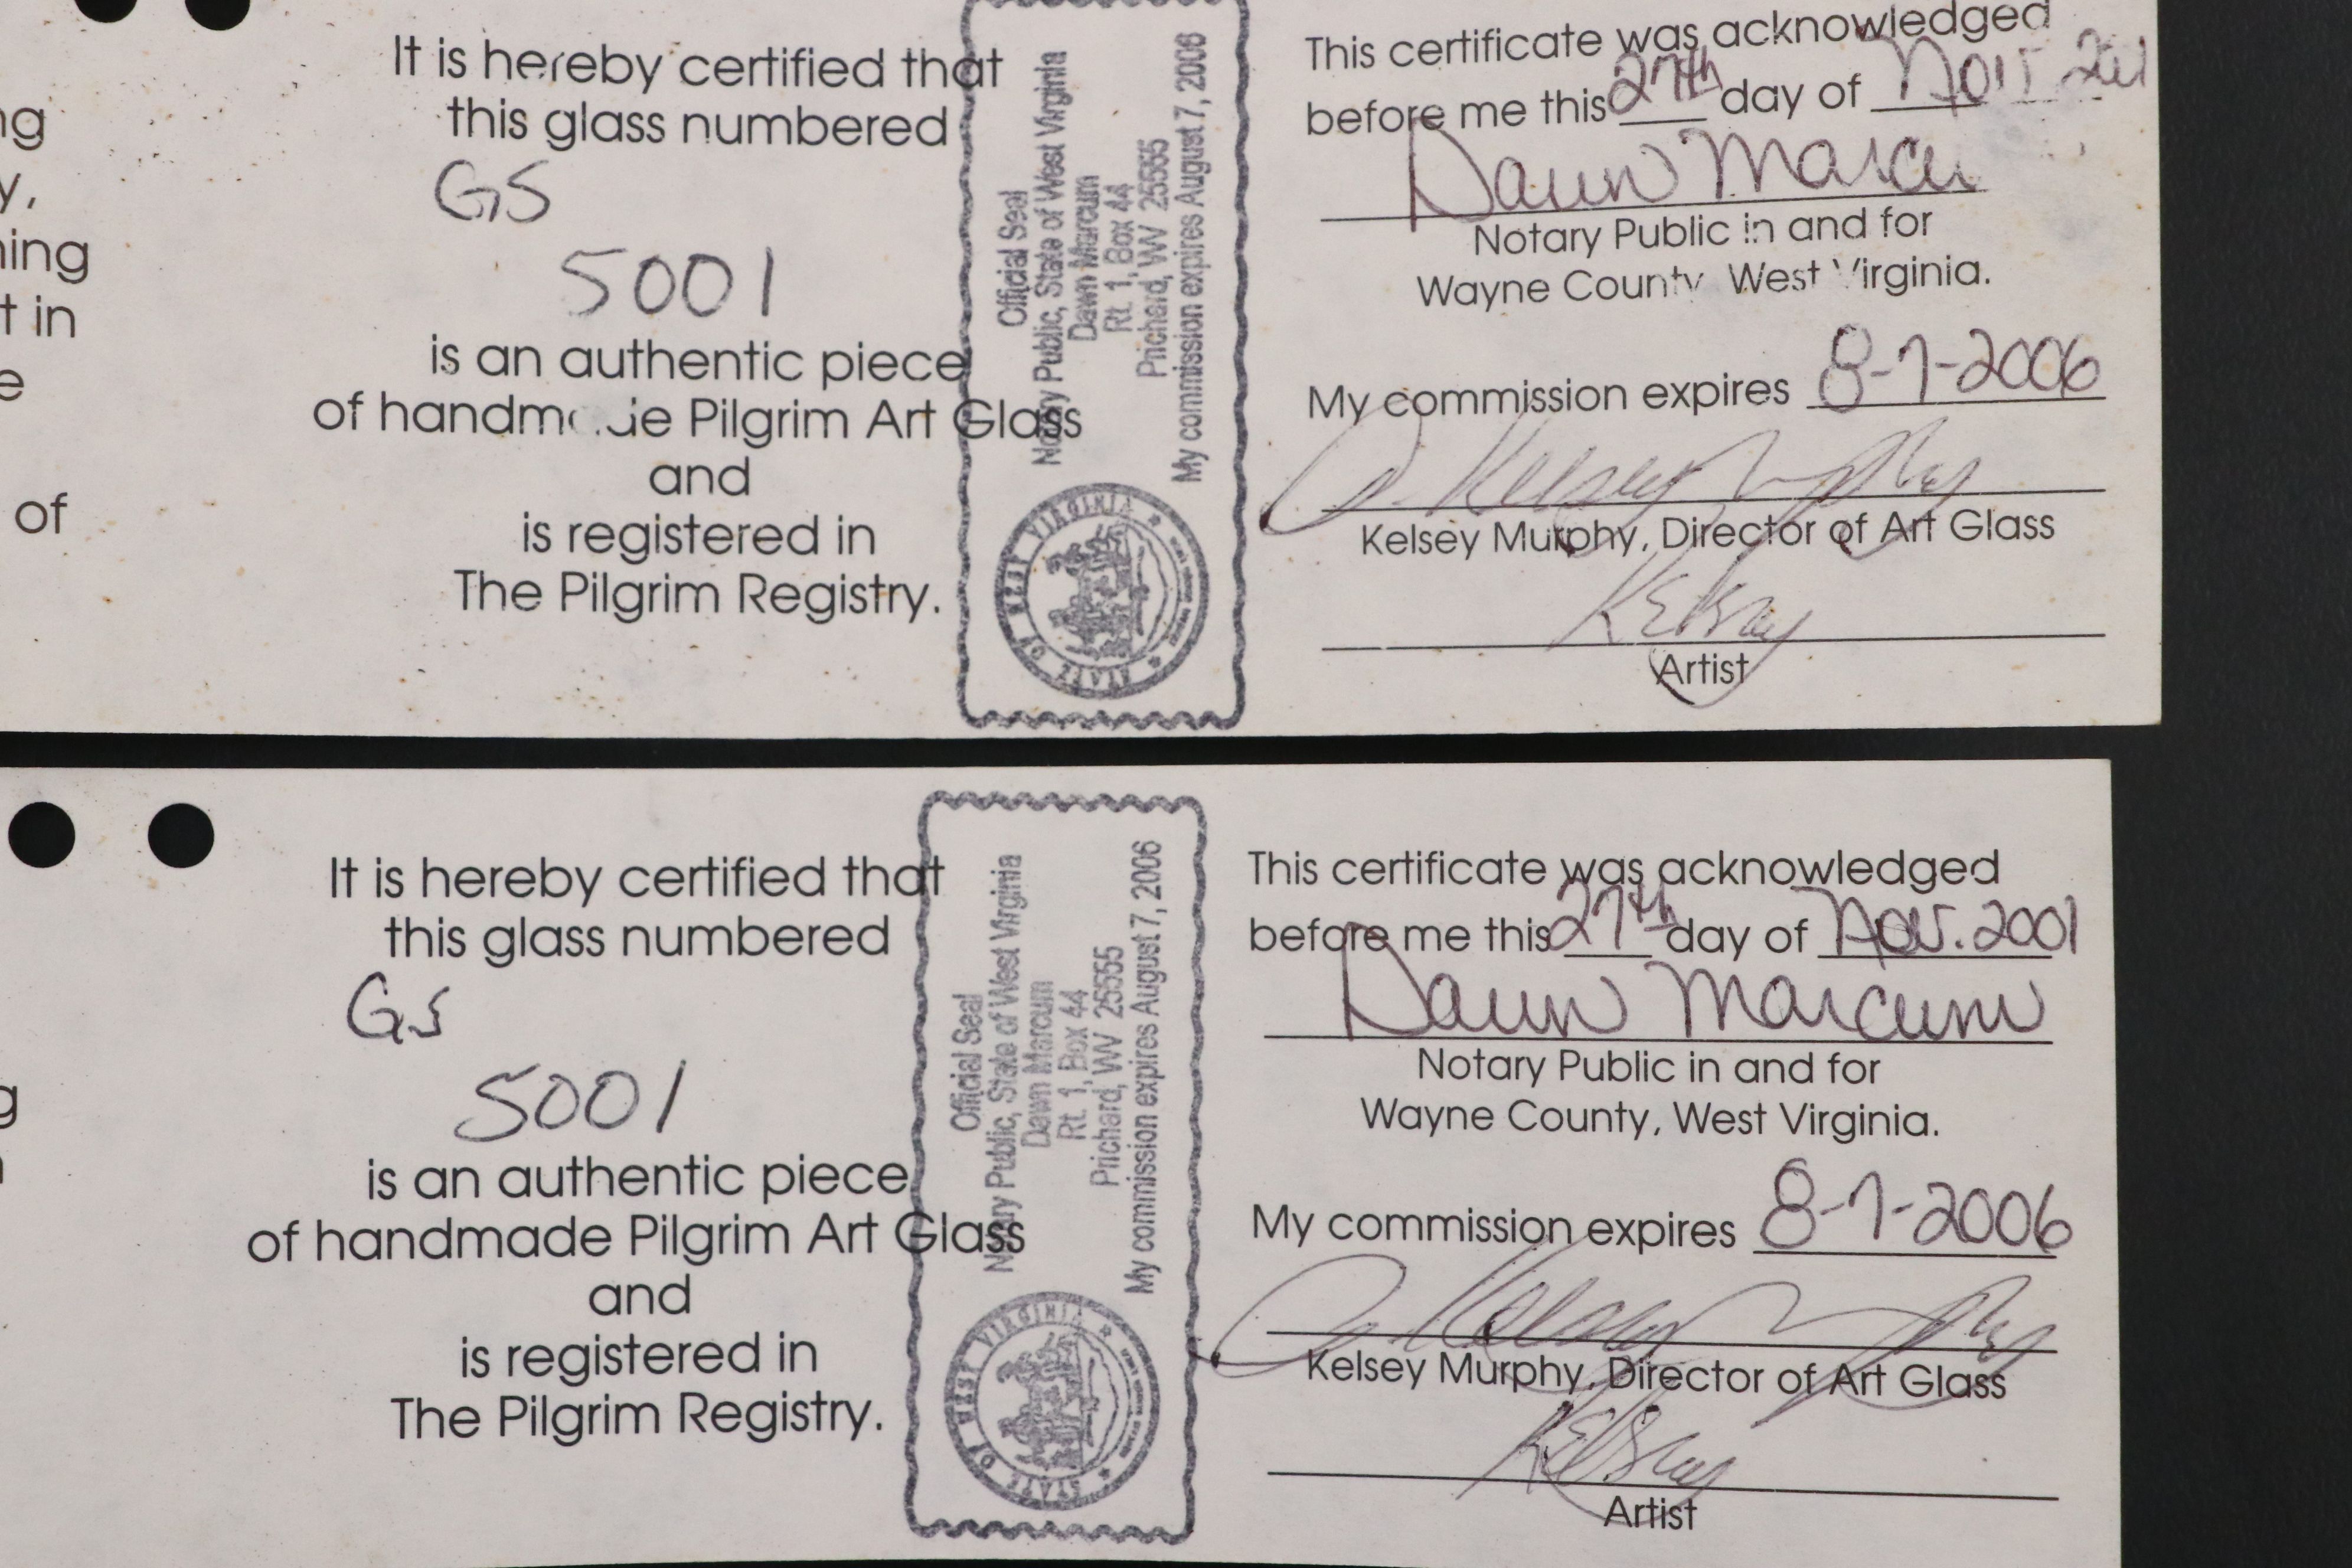 ng
y,
ning
t in
e
of
It is hereby certified that
this glass numbered
GS
5001
is an authentic piece
of handmade Pilgrim Art Glass
and
is registered in
The Pilgrim Registry.
Official Seal
Notary Public, State of West Virginia
Dawn Marcum
Rt. 1, Box 44
Prichard, WV 25555
My commission expires August 7, 2006
STATE OF WEST VIRGINIA
This certificate was acknowledged
before me this 27th day of Nov
Dawn Marcu
Notary Public in and for
Wayne County, West Virginia.
My commission expires 8-7-2006
Kelsey Murphy
Kelsey Murphy, Director of Art Glass
Kelsey
Artist
g
It is hereby certified that
this glass numbered
GS
5001
is an authentic piece
of handmade Pilgrim Art Glass
and
is registered in
The Pilgrim Registry.
Official Seal
Notary Public, State of West Virginia
Dawn Marcum
Rt. 1, Box 44
Prichard, WV 25555
My commission expires August 7, 2006
STATE OF WEST VIRGINIA
This certificate was acknowledged
before me this 27th day of Nov. 2001
Dawn Marcum
Notary Public in and for
Wayne County, West Virginia.
My commission expires 8-7-2006
Kelsey Murphy
Kelsey Murphy, Director of Art Glass
Kelsey
Artist